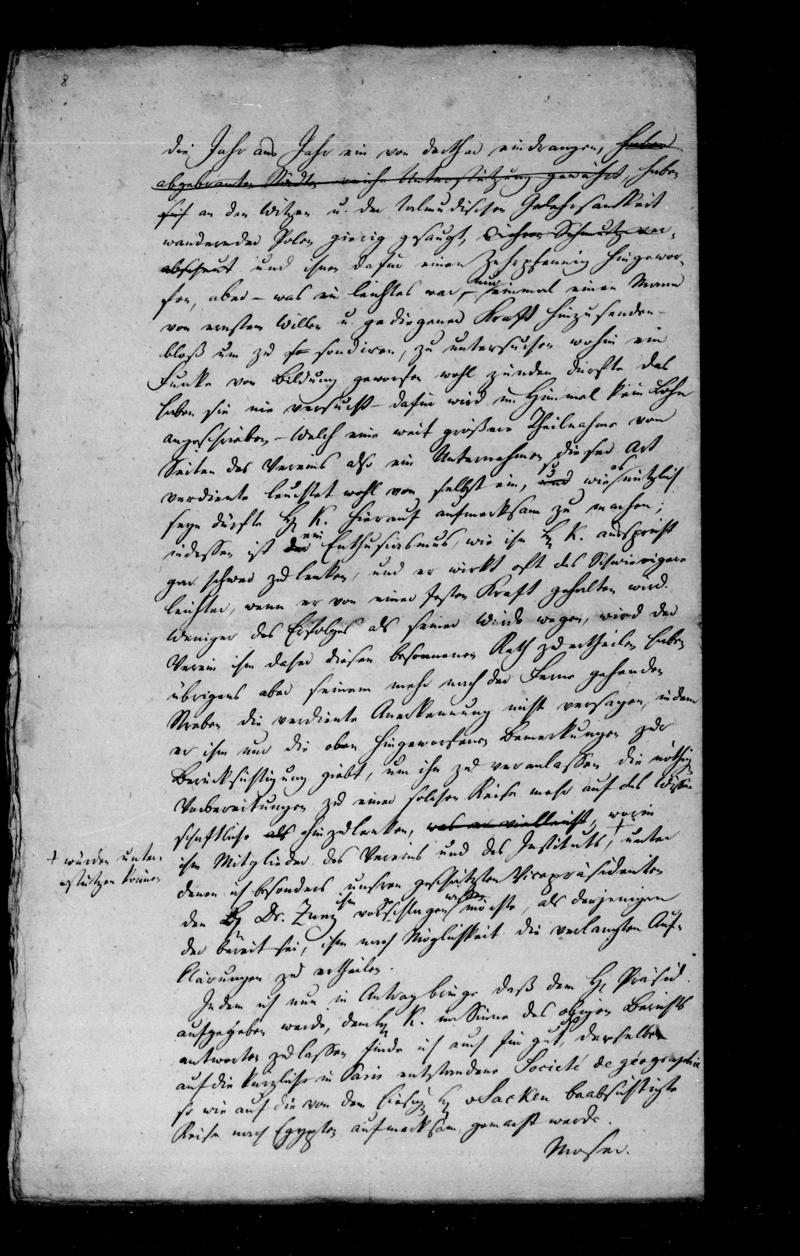 8
die Jahr aus Jahr ein von dorther eindrangen, haben
abgebrannten Städten reiche Unterstützung gewährt, haben
sich an den Witzen u. der talmudischen Gelehrsamkeit
wandernder Polen gierig gesaugt, deren Schmutz ver-
abscheut und ihnen dafür einen Zehrpfennig hingewor-
fen, aber – was ein leichtes war, – nur einmal einen Mann
von ernstem Willen u. gediegener Kraft hinzusenden –
bloß um zu sondiren, zu untersuchen wohin ein
Funke von Bildung geworfen wohl zünden dürfte das
haben sie nie versucht – dafür wird im Himmel kein Lohn
angeschrieben. – Welch eine weit größere Theilnahme von
Seiten des Vereins also ein Unternehmen dieser Art
verdiente leuchtet wohl von selbst ein, und wie es nützlich
seyn dürfte H. K. hierauf aufmerksam zu machen;
indessen ist ein Enthusiasmus, wie ihn H. K. ausspricht
gar schwer zu lenken, und er wirkt oft das Schwierigere
leichter, wenn er von einer festen Kraft gehalten wird.
Weniger des Erfolges als seiner Würde wegen, wird der
Verein ihm daher diesen besonnenen Rath zu ertheilen haben
übrigens aber seinem mehr nach der Ferne gehenden
Streben die verdiente Anerkennung nicht versagen, indem
er ihm nur die oben hingeworfenen Bemerkungen zur
Berücksichtigung giebt, um ihn zu veranlassen die nöthigen
Vorbereitungen zu einer solchen Reise mehr auf das Wissen-
schaftliche hinzulenken, was er vielleicht, worin
ihn Mitglieder des Vereins und des Instituts +, unter
+ würden unter-
stützen können
denen ich besonders unsren geschätzten Vicepräsidenten
den H. Dr. Zunz ihm vorschlagen möchte, als derjenigen
der bereit sei, ihm nach Möglichkeit die verlangten Auf-
klärungen zu ertheilen.
Indem ich nun in Antrag bringe daß dem H. Präsid.
aufgegeben werde, dem H. K. im Sinne des obigen Berichts
antworten zu lassen finde ich auch für gut, daß derselbe
auf die kürzlich in Paris entstandene Societé de géographie
so wie auf die von dem hiesig. H. v Sacken beabsichtigte
Reise nach Egypten aufmerksam gemacht werde.
Moser.